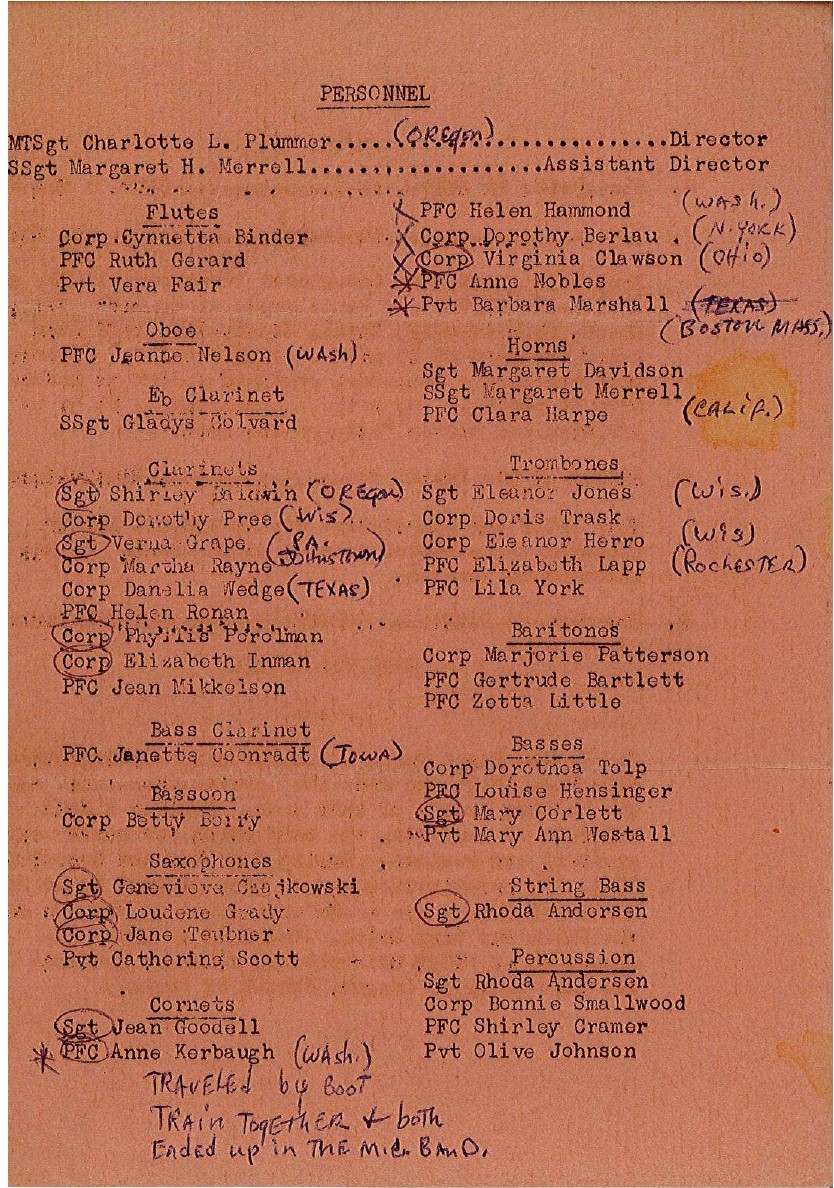 PERSONNEL
MTSgt Charlotte L. Plummer.....(OREgon)..............................Director
SSgt Margaret H. Merrell.......................Assistant Director
Flutes
Corp. Cynnetta Binder
PFC Ruth Gerard
Pvt Vera Fair
Oboe
PFC Jeanne Nelson (WAsh)
Eb Clarinet
SSgt Gladys Colvard
Clarinets
Sgt Shirley Baldwin (OREgon)
Corp Dorothy Pree (Wis)
Sgt Verna Grape (PA. JOhNSTOWN)
Corp Martha Rayne
Corp Danelia Wedge (TEXAS)
PFC Helen Ronan
Corp Phyllis Perelman
Corp Elizabeth Inman
PFC Jean Mikkelson
Bass Clarinet
PFC. Janetta Coonradt (IOWA)
Bassoon
Corp Betty Berry
Saxophones
Sgt Genevieve Czajkowski
Corp Loudene Grady
Corp Jane Teubner
Pvt Catherine Scott
Cornets
Sgt Jean Goodell
* PFC Anne Kerbaugh (WAsh.)
TRAVELEd by BOOT
TRAin TOgETHER & both
Ended up in THE M.C. BAND.
X PFC Helen Hammond (WASh.)
X Corp Dorothy Berlau (N.YORK)
X Corp Virginia Clawson (OHio)
* PFC Anne Nobles
* Pvt Barbara Marshall (TEXAS)
(BOSTON MASS.)
Horns
Sgt Margaret Davidson
SSgt Margaret Merrell
PFC Clara Harpe (CALiF.)
Trombones
Sgt Eleanor Jones (Wis.)
Corp Doris Trask
Corp Eleanor Herro (Wis)
PFC Elizabeth Lapp (ROCHESTER)
PFC Lila York
Baritones
Corp Marjorie Patterson
PFC Gertrude Bartlett
PFC Zetta Little
Basses
Corp Dorothea Tolp
PFC Louise Hensinger
Sgt Mary Corlett
Pvt Mary Ann Westall
String Bass
Sgt Rhoda Andersen
Percussion
Sgt Rhoda Andersen
Corp Bonnie Smallwood
PFC Shirley Cramer
Pvt Olive Johnson